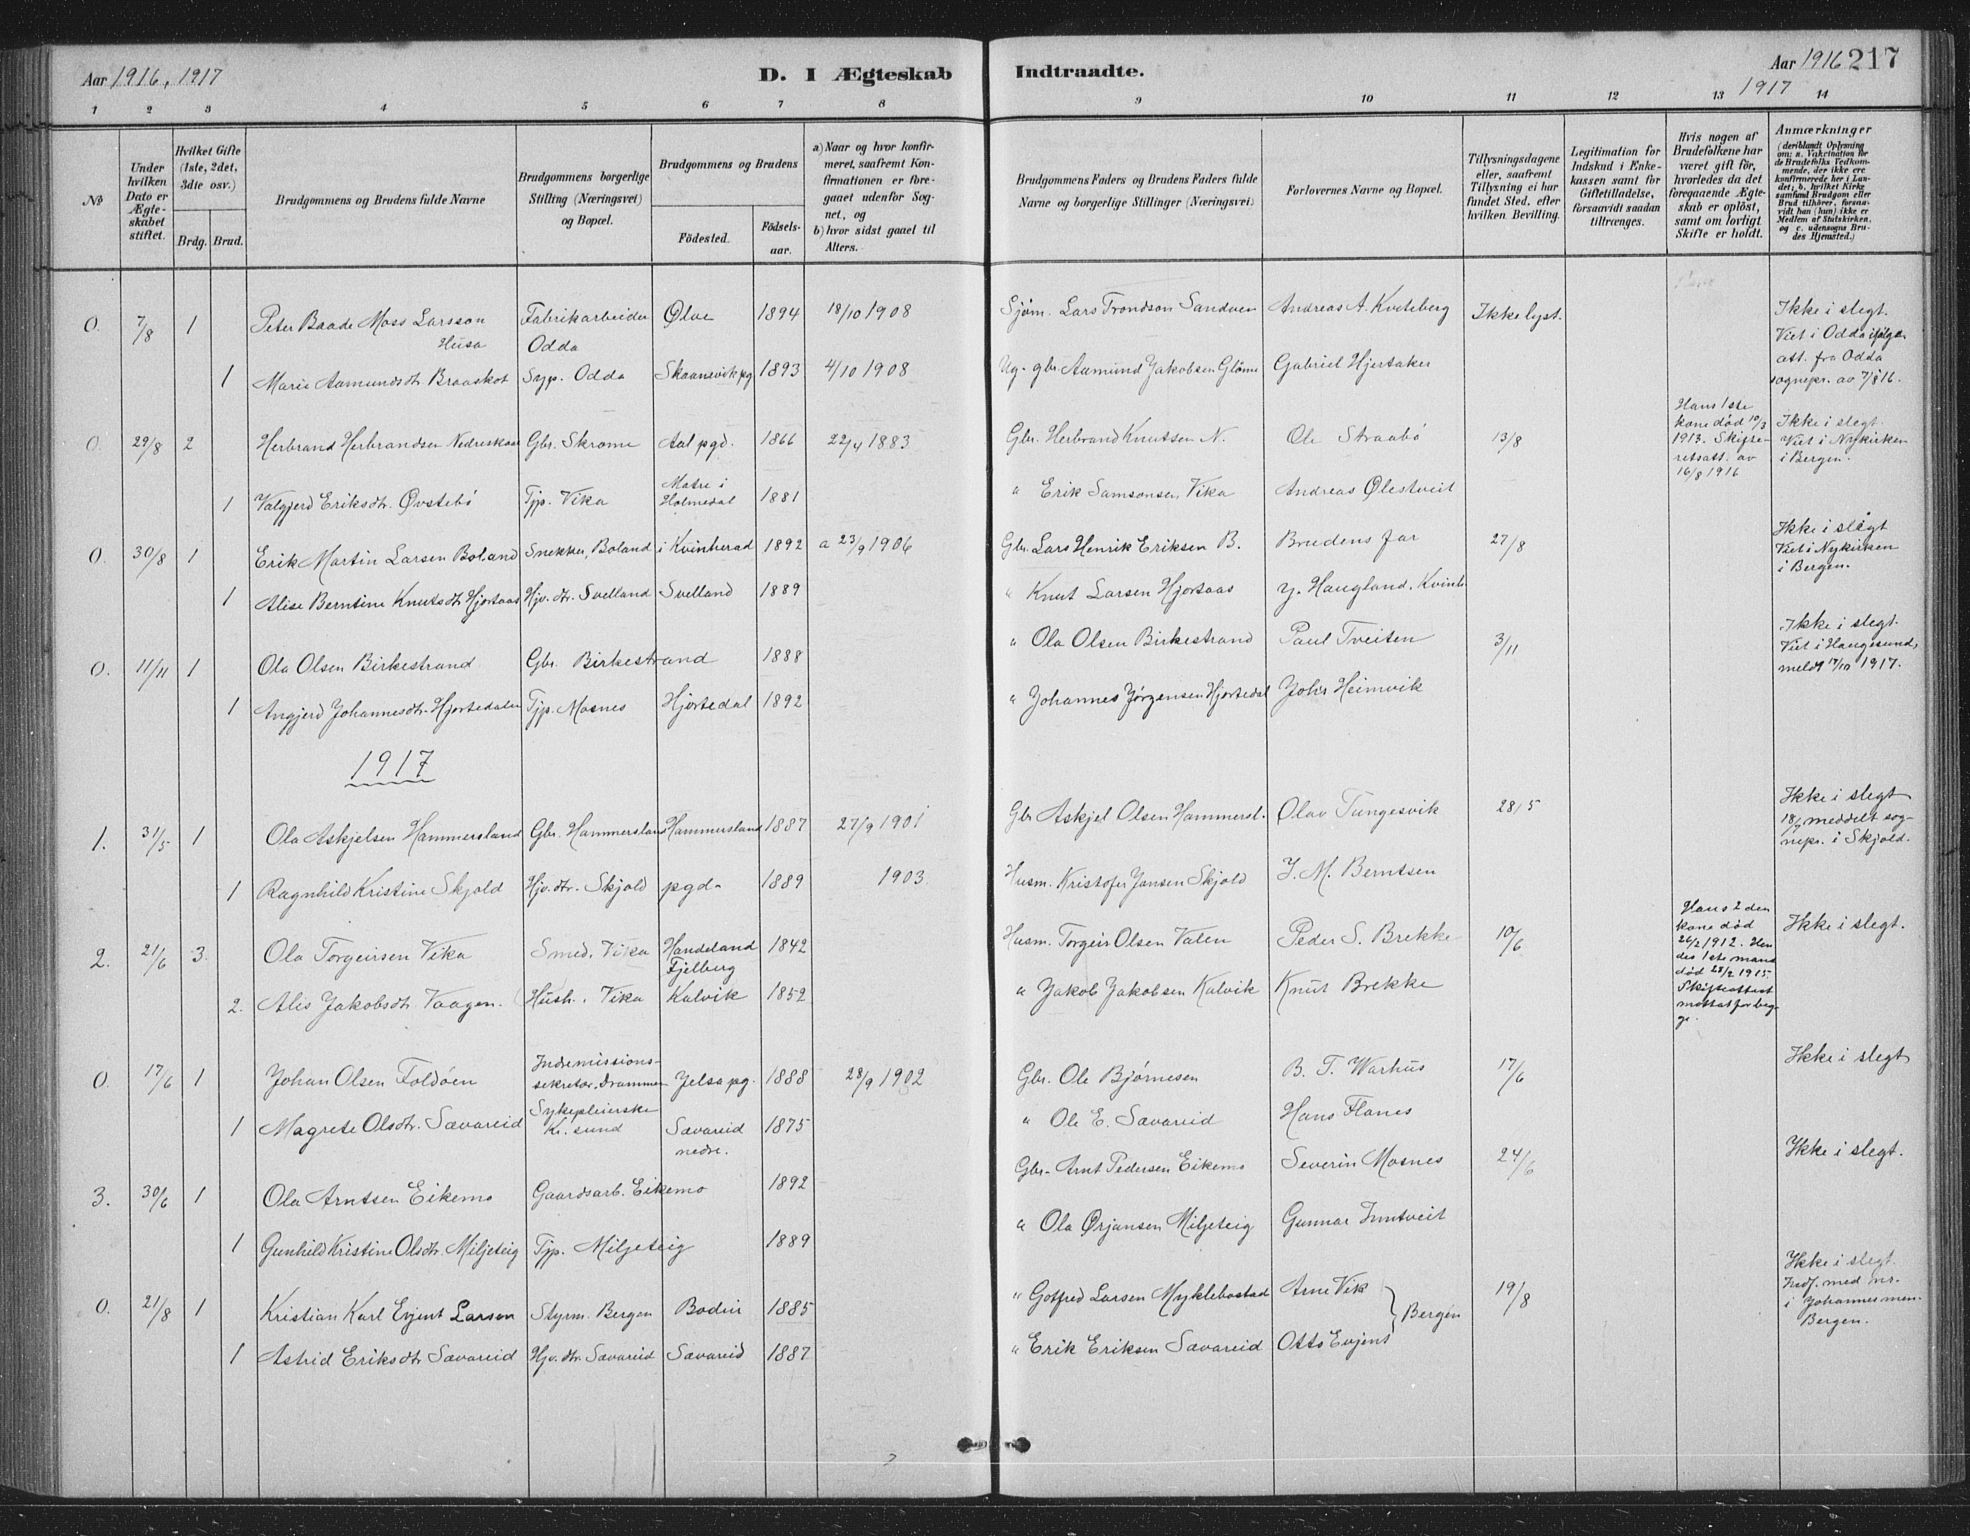 Aar 1916, 1917
D. I Ægteskab
Indtraadte.
Aar 1916 217
1917
1 2 3 4 5 6 7 8 9 10 11 12 13 14
No
Under hvilken Dato er Ægteskabet stiftet.
Hvilket Gifte (1ste, 2det, 3dte osv.)
Brdg. Brud.
Brudgommens og Brudens fulde Navne
Brudgommens borgerlige Stilling (Næringsvei) og Bopæl.
Brudgommens og Brudens
Födested.
Födselsaar.
a) Naar og hvor konfirmeret, saafremt Konfirmationen er foregaaet udenfor Sognet, og
b) hvor sidst gaaet til Alters.
Brudgommens Faders og Brudens Faders fulde Navne og borgerlige Stillinger (Næringsvei)
Forlovernes Navne og Bopæl.
Tillysningsdagene eller, saafremt Tillysning ei har fundet Sted, efter hvilken Bevilling.
Legitimation for Indskud i Enkekassen samt for Giftetilladelse, forsaavidt saadan tiltrænges.
Hvis nogen af Brudefolkene har været gift för, hvorledes da det foregaaende Ægteskab er oplöst, samt om lovligt Skifte er holdt.
Anmærkninger (deriblandt Oplysning om: a. Vakcination for de Brudefolks Vedkommende, der ikke ere konfirmerede her i Landet; b. hvilket Kirkesamfund Brudgom eller Brud tilhörer, forsaavidt han (hun) ikke er Medlem af Statskirken, og c. udensogns Brudes Hjemsted.)
0. 7/8 1 Peter Baade Moss Larsson Husa Fabrikarbeider Odda Ølve 1894 18/10 1908 Sjøm. Lars Trondson Sandven Andreas A. Kviteberg Ikke lyst. Ikke i slegt. Viet i Odda ifølge att. fra Odda sognepr. av 7/8 16.
1 Marie Aamundsdtr Braaskot Syp. Odda Skaanevik pg 1893 4/10 1908 Ug. gbr. Aamund Jakobsen Gabriel Hjertaker
0. 29/8 2 Herbrand Herbrandsen Gbr. Skrome Aal pgd. 1866 22/4 1883 Gbr. Herbrand Knutsen N. Ole Straabø 13/8 Hans 1ste kone død 10/3 1913. Skifteretsatt. av 16/8 1916 Ikke i slegt. Viet i Nykirken i Bergen.
1 Valgjerd Eriksdtr. Øvstebö Tjp. Vika Matre i Holmedal 1881 " Erik Samsonsen, Vika Andreas Ølestveit
0. 30/8 1 Erik Martin Larsen Boland Snekker, Boland i Kvinherad 1892 a 23/9 1906 Gbr. Lars Henrik Eriksen B. Brudens far 27/8 Ikke i slegt Viet i Nykirken i Bergen.
1 Alise Berntine Knutsdtr Hjortaas Hjv. dtr. Svelland Svelland 1889 " Knut Larsen Hjortaas Y. Haugland, Kvinh.
0. 11/11 1 Ola Olsen Birkestrand Gbr. Birkestrand 1888 " Ola Olsen Birkestrand Paul Tveiten 3/11 Ikke i slegt. Viet i Haugesund, meldt 17/10 1917.
1 Angjerd Johannesdtr. Hjortedalen Tjp. Mosnes Hjortedal 1892 " Johannes Jörgensen Hjortedal Johs Heimvik
1917
1. 31/5 1 Ola Askjelsen Hammersland Gbr. Hammersland Hammersland 1887 27/9 1901 Gbr Askjel Olsen Hammersl. Olav Tungesvik 28/5 Ikke i slegt 18/7 meddelt sognepr. i Skjold.
1 Ragnhild Kristine Skjold Hjv. dtr. Skjold pgd. 1889 1903 Husm. Kristofer Jansen Skjold J. M. Berntsen
2. 21/6 3. Ola Torgeirsen Vika Smed. Vika Handeland Fjelberg 1842 Husm. Torgeir Olsen Valen Peder S. Brekke 10/6 Hans 2den kone død 26/2 1912. Hendes 1ste mand død 28/2 1915 Skifteattest mottat for begge. Ikke i slegt.
2. Alis Jakobsdtr Vaagen. Hush. Vika Kalvik 1852 " Jakob Jakobsen Kalvik Knut Brekke
0. 17/6 1 Johan Olsen Foldöen Indremissionssekretær, Drammen Jelsa pg. 1888 28/9 1902 Gbr. Ole Bjørnesen B. T. Warhus 17/6 Ikke i slegt
1 Magrete Olsdtr. Sævareid Sykepleierske Kr. sund Sævareid nedre. 1875 " Ole E. Sævareid Hans Flanes
3. 30/6 1 Ola Arntsen Eikemo Gaardsarb. Eikemo 1892 Gbr. Arnt Pedersen Eikemo Severin Mosnes 24/6 Ikke i slegt.
1 Gunhild Kristine Olsdtr. Miljeteig Tjp. Miljeteig 1889 " Ola Ørjansen Miljeteig Gunnar Tuntveit
0. 21/8 1 Kristian Karl Evjent Larsen Styrm. Bergen Bodin 1885 " Gotfred Larsen Myklebostad Arne Vik 19/8 Ikke i slegt. Indf. med nr. i Johannesmen. Bergen.
Bergen
1 Astrid Eriksdtr Sævareid Hjv. dtr Sævareid Sævareid 1887 " Erik Eriksen Sævareid Otto Evjent